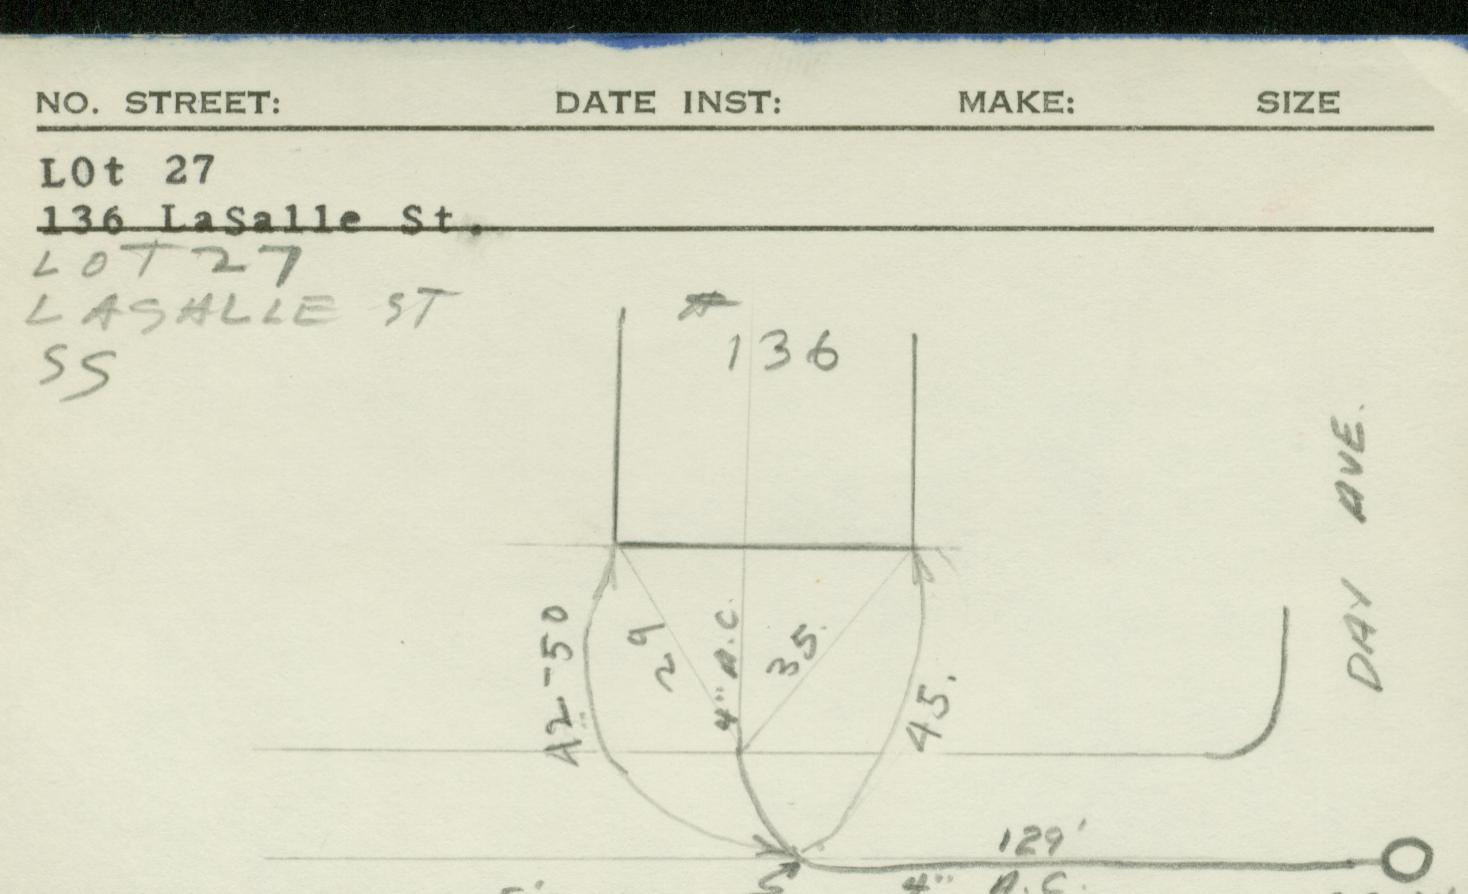 NO. STREET: DATE INST: MAKE: SIZE
LOt 27
136 LaSalle St.
LOT 27
LASALLE ST
SS
136
DAY AVE.
42-50
29
4" A.C.
35.
45.
129'
4" A.C.